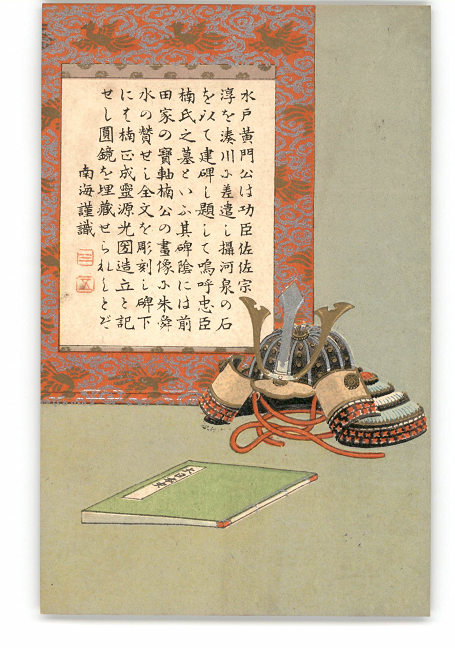 水戸黄門公は功臣佐佐宗
淳を湊川に差遣し攝河泉の石
を以て建碑し題して嗚呼忠臣
楠氏之墓といふ其碑陰には前
田家の寶軸楠公の畫像に朱舜
水の賛せし全文を彫刻し碑下
には楠正成靈源光圀造立と記
せし圓鏡を埋藏せられしとぞ
南海謹識